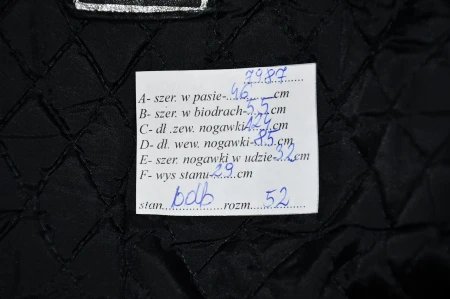 7987
A- szer. w pasie-.46.......cm
B- szer. w biodrach-55.cm
C- dł .zew. nogawki-124cm
D- dł. wew. nogawki-85.cm
E- szer. nogawki w udzie-32cm
F- wys stanu-29.cm
stan...bdb......rozm...52......